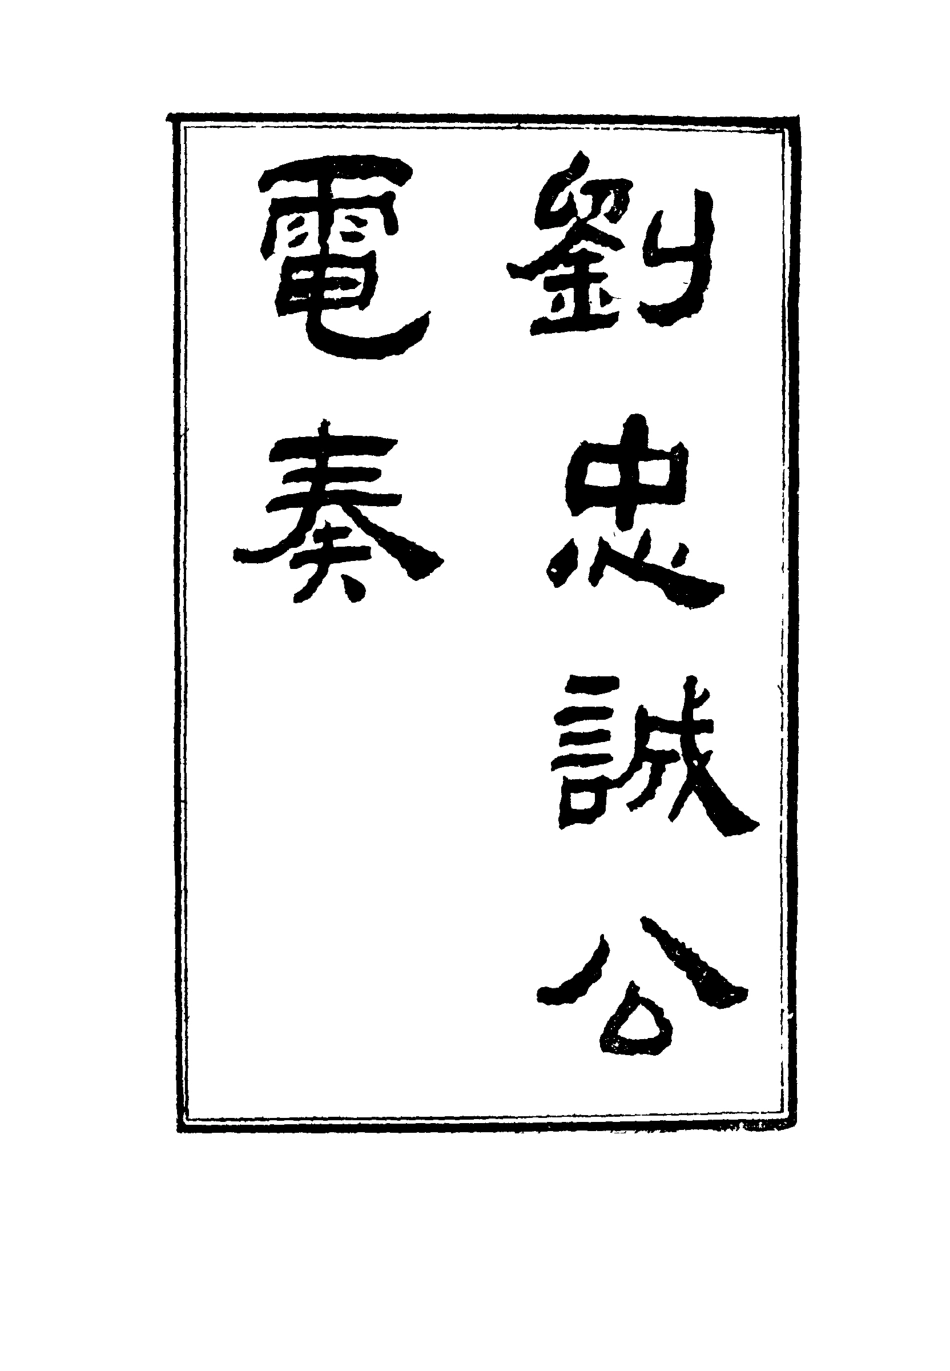 劉忠誠公
電奏